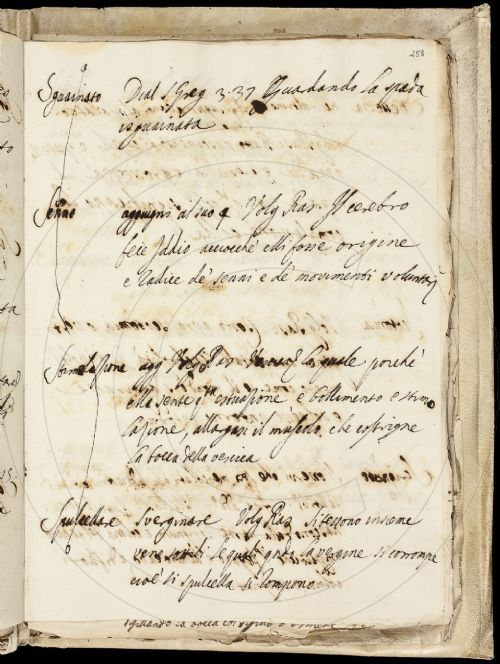 258
Sguainato Dial S Greg 3.37 Guardando la spada
isguainata
Senno aggiugni al suo q Volg Ras. Il cerebro
fece Iddio accocchè elli fosse origine
e radice de' senni e de' movimenti voluntarj
Stimolazione agg Volg Ras la quale perchè
ella sente q.ta estuazione e bollimento e stimo
lazione, allarga il muscolo, che costrigne
la bocca della vescica
Spulcellare sverginare Volg Ras Si tessono insieme
vene sottili le quali q.do la vergine si corrompe
cioè si spulcella si rompono